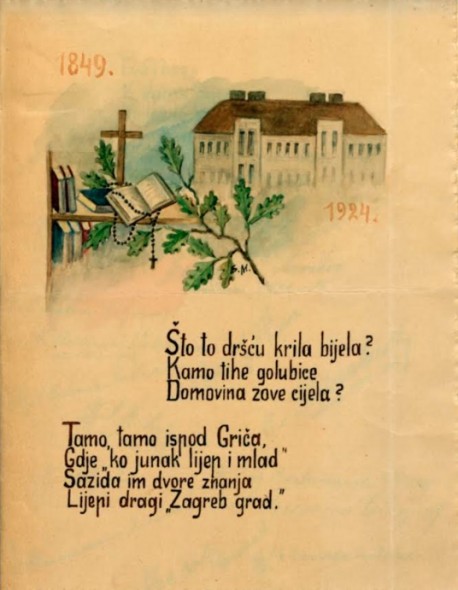 1849.
1924.
B.M.
Što to dršću krila bijela?
Kamo tihe golubice
Domovina zove cijela?
Tamo, tamo ispod Griča,
Gdje „ko junak lijep i mlad"
Sazida im dvore znanja
Lijepi dragi „Zagreb grad."